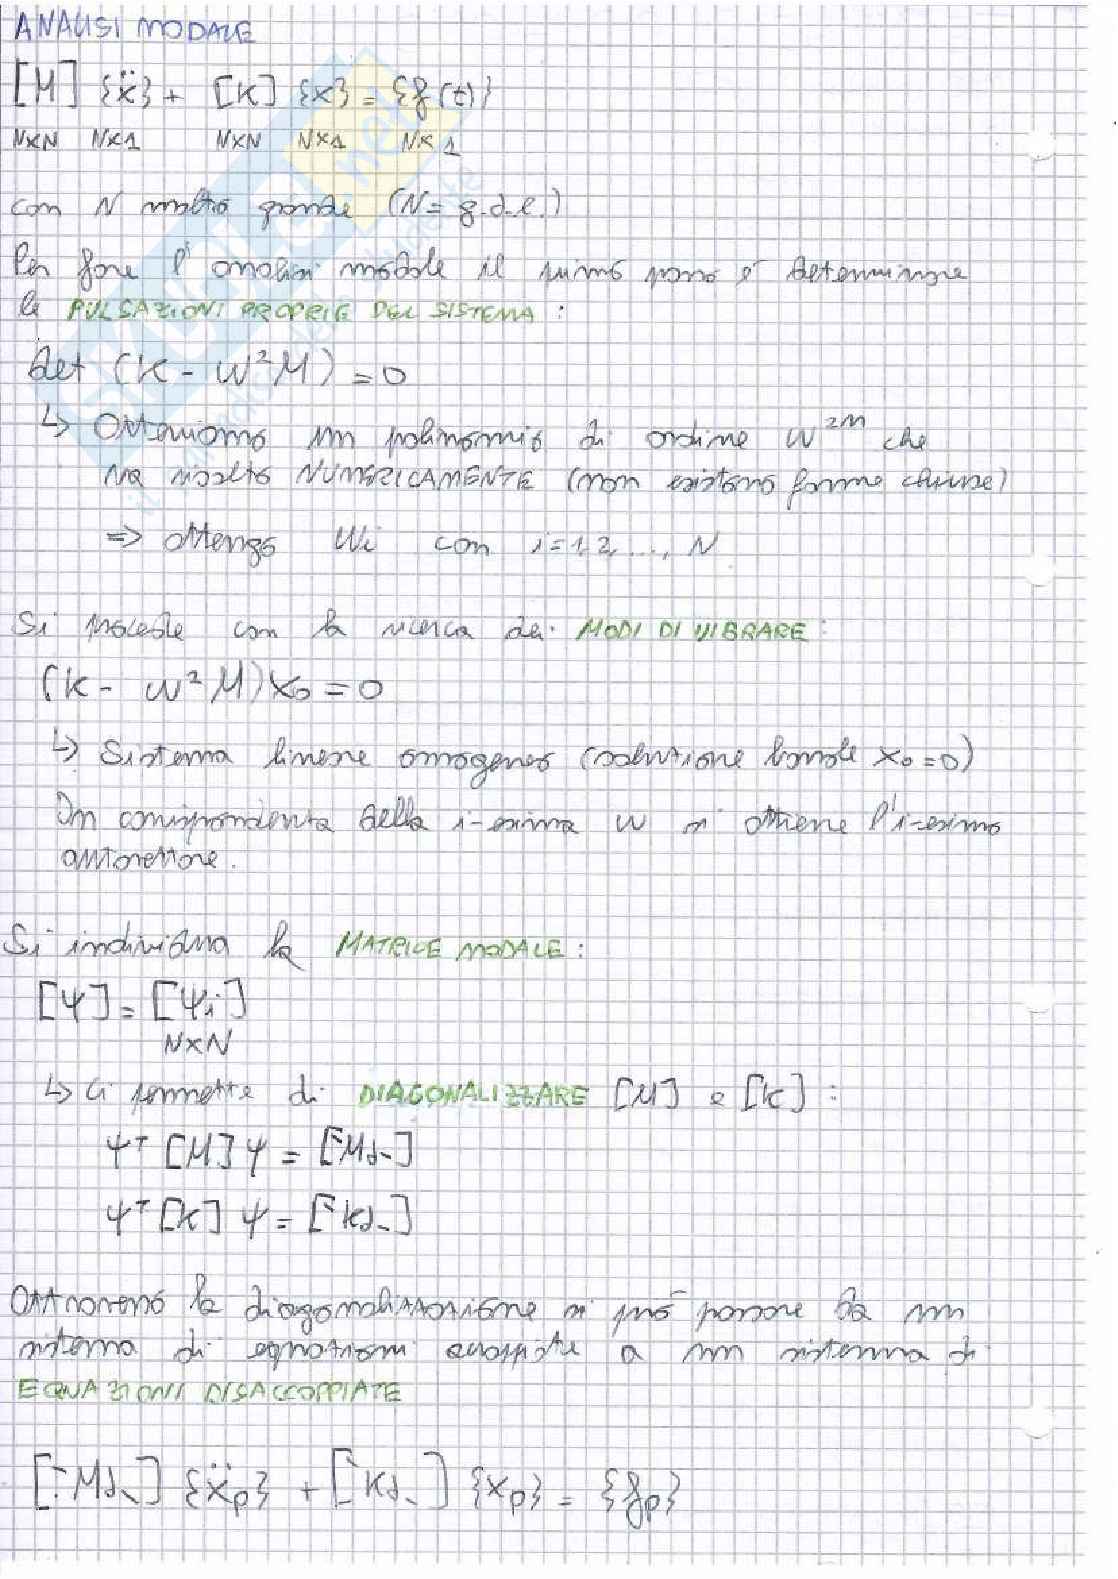 ANALISI MODALE
[M] {ẍ} + [K] {x} = {f(t)}
NxN Nx1 NxN Nx1 Nx1
con N molto grande (N = g.d.l.)
Per fare l'analisi modale il primo passo è determinare
le PULSAZIONI PROPRIE DEL SISTEMA :
det (K - ω²M) = 0
↳ Otteniamo un polinomio di ordine ω^2N che
va risolto NUMERICAMENTE (non esistono forme chiuse)
=> ottengo ωi con i=1,2,..., N
Si procede con la ricerca dei MODI DI VIBRARE :
(K - ω²M) x₀ = 0
↳ Sistema lineare omogeneo (soluzione banale x₀=0)
In corrispondenza della i-esima ω si ottiene l'i-esimo
autovettore.
Si individua la MATRICE MODALE :
[Ψ] = [Ψi]
NxN
↳ Ci permette di DIAGONALIZZARE [M] e [K] :
Ψᵀ [M] Ψ = [Md]
Ψᵀ [K] Ψ = [Kd]
Attraverso la diagonalizzazione si può passare da un
sistema di equazioni accoppiate a un sistema di
EQUAZIONI DISACCOPPIATE
[Md] {ẍp} + [Kd] {xp} = {fp}
SKUOLA.net